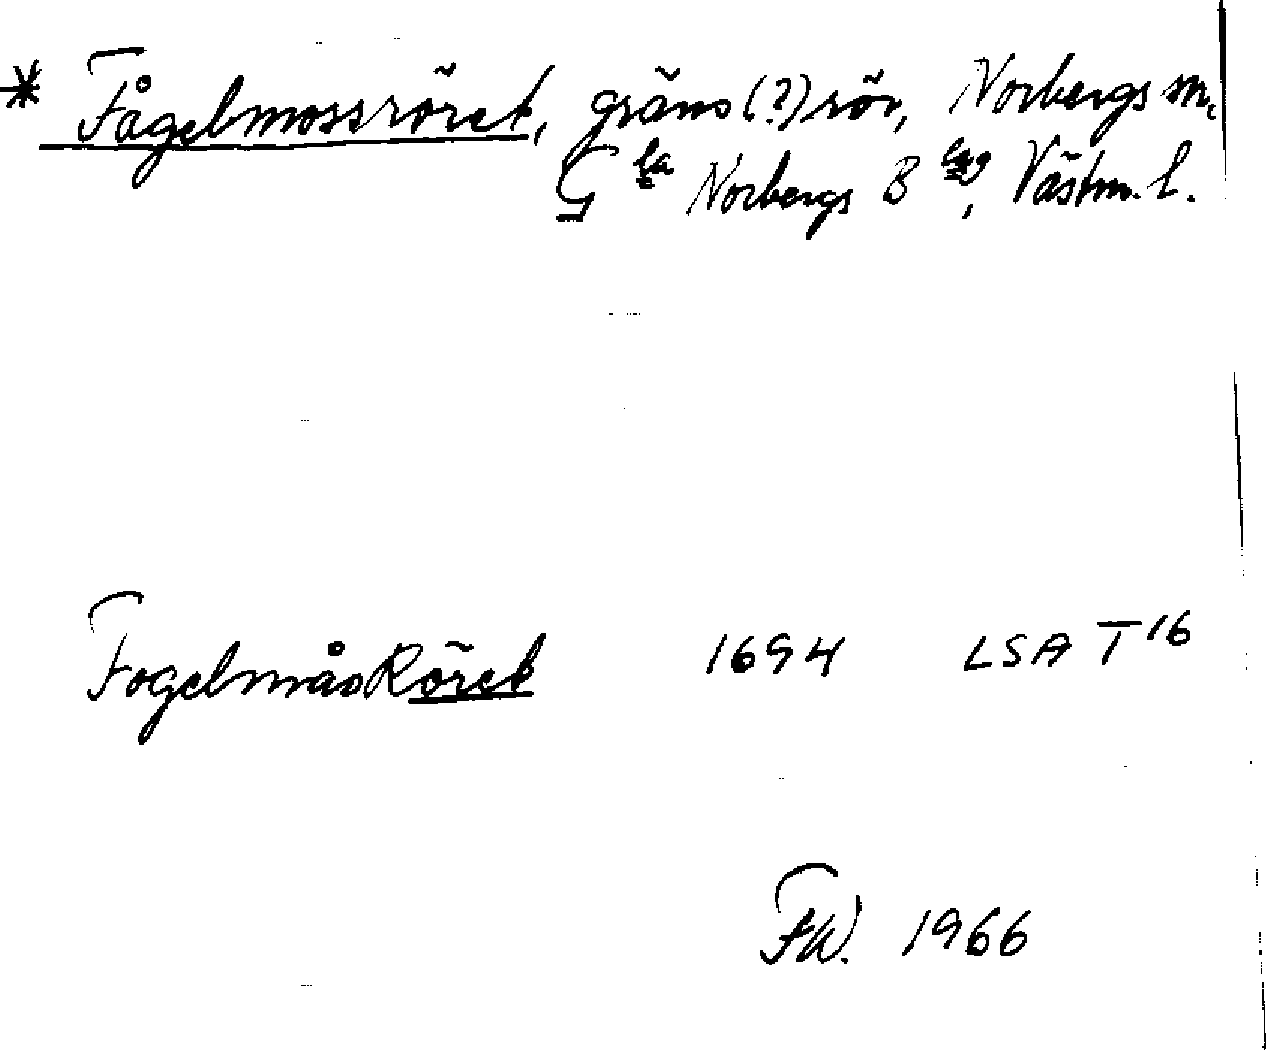 * Fågelmossröret, gräns(?)rör, Norbergs sn,
G la Norbergs B lag, Västm. l.
FogelmåsRöret 1694 LSA T 16
FW. 1966